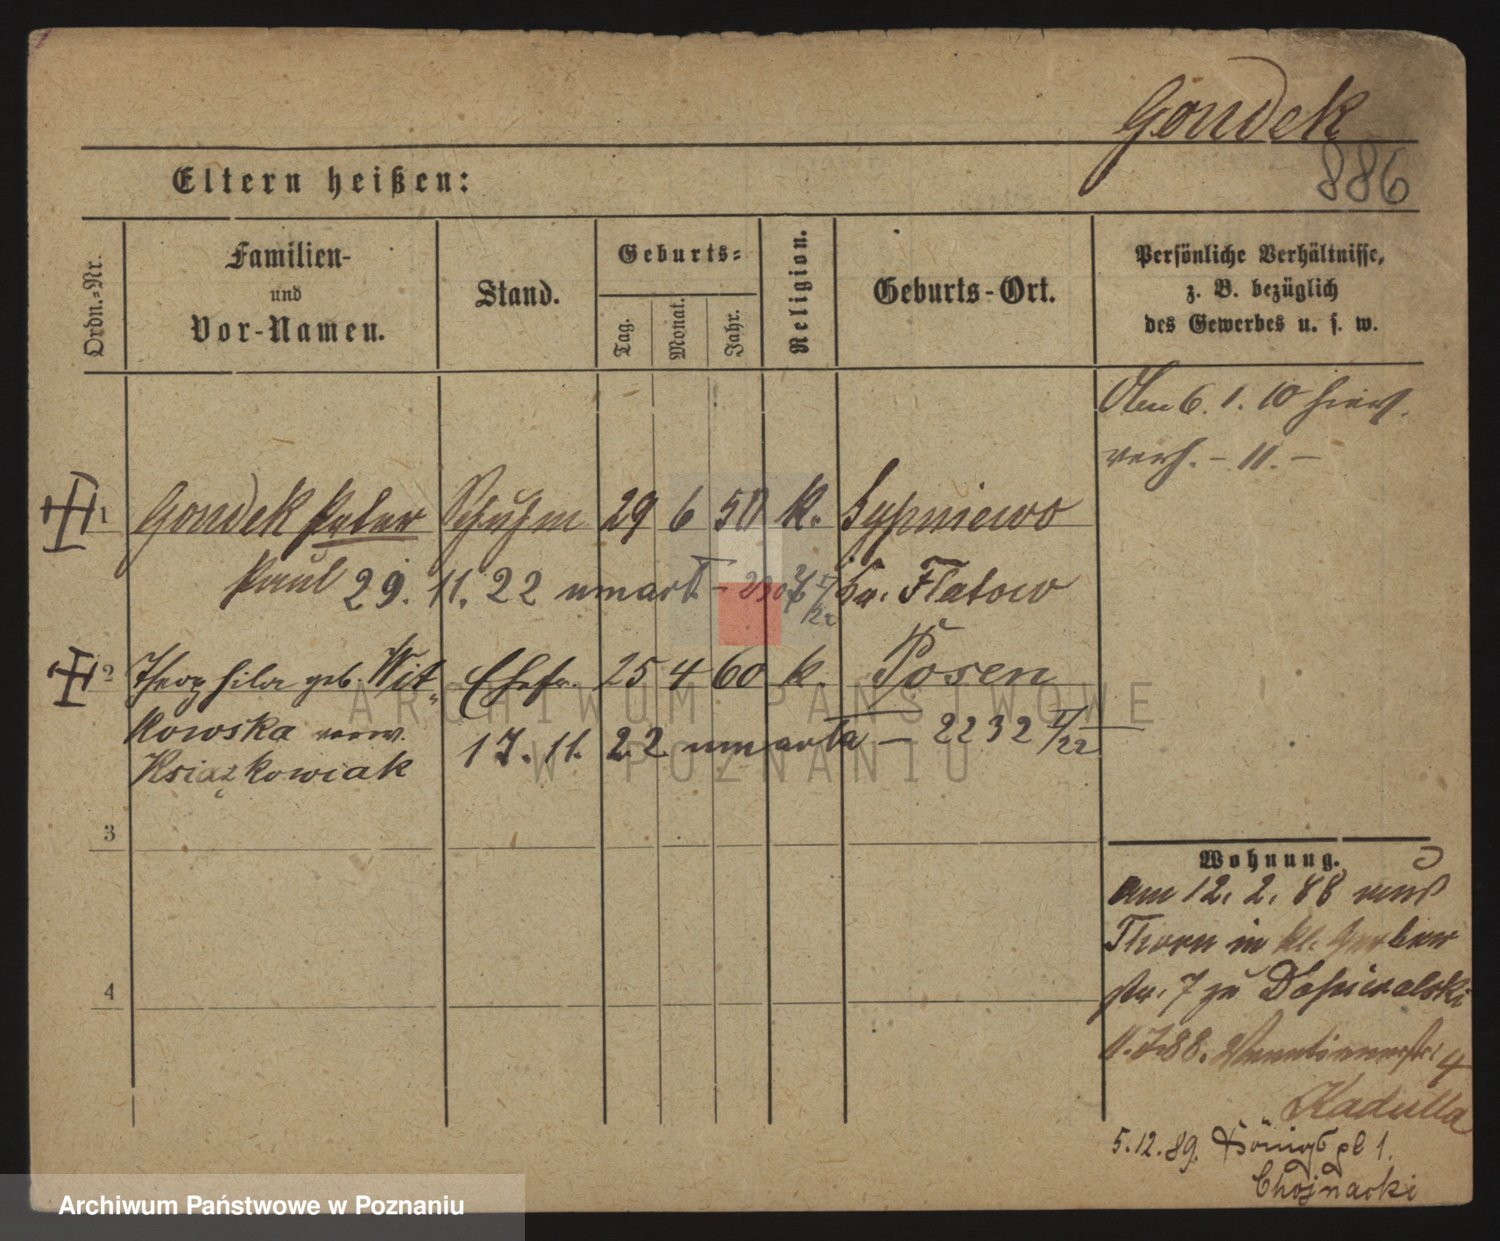 Gondek
886
Eltern heißen:
Ordn.-Nr.
Familien-
und
Vor-Namen.
Stand.
Geburts-
Tag.
Monat.
Jahr.
Religion.
Geburts-Ort.
Persönliche Verhältnisse,
z. B. bezüglich
des Gewerbes u. s. w.
6. 1. 10
verh. - 11. -
1 Gondek Peter Schuhm 29 6 50 k. Sypniewo
Paul 29. 11. 22 umarł Kr. Flatow
2 Theophila geb. Wit- Ehefr. 25 4 60 k. Posen
kowska verw. 17. 11. 22 umarła - 2232 II/22
Książkowiak
3
4
Wohnung.
am 12. 2. 88 aus
Thorn in kl. Gerber
str. 7 zu
88. 4
Kadulla
5.12.89. Königspl 1.
Chojnacki
ARCHIWUM PAŃSTWOWE
W POZNANIU
Archiwum Państwowe w Poznaniu